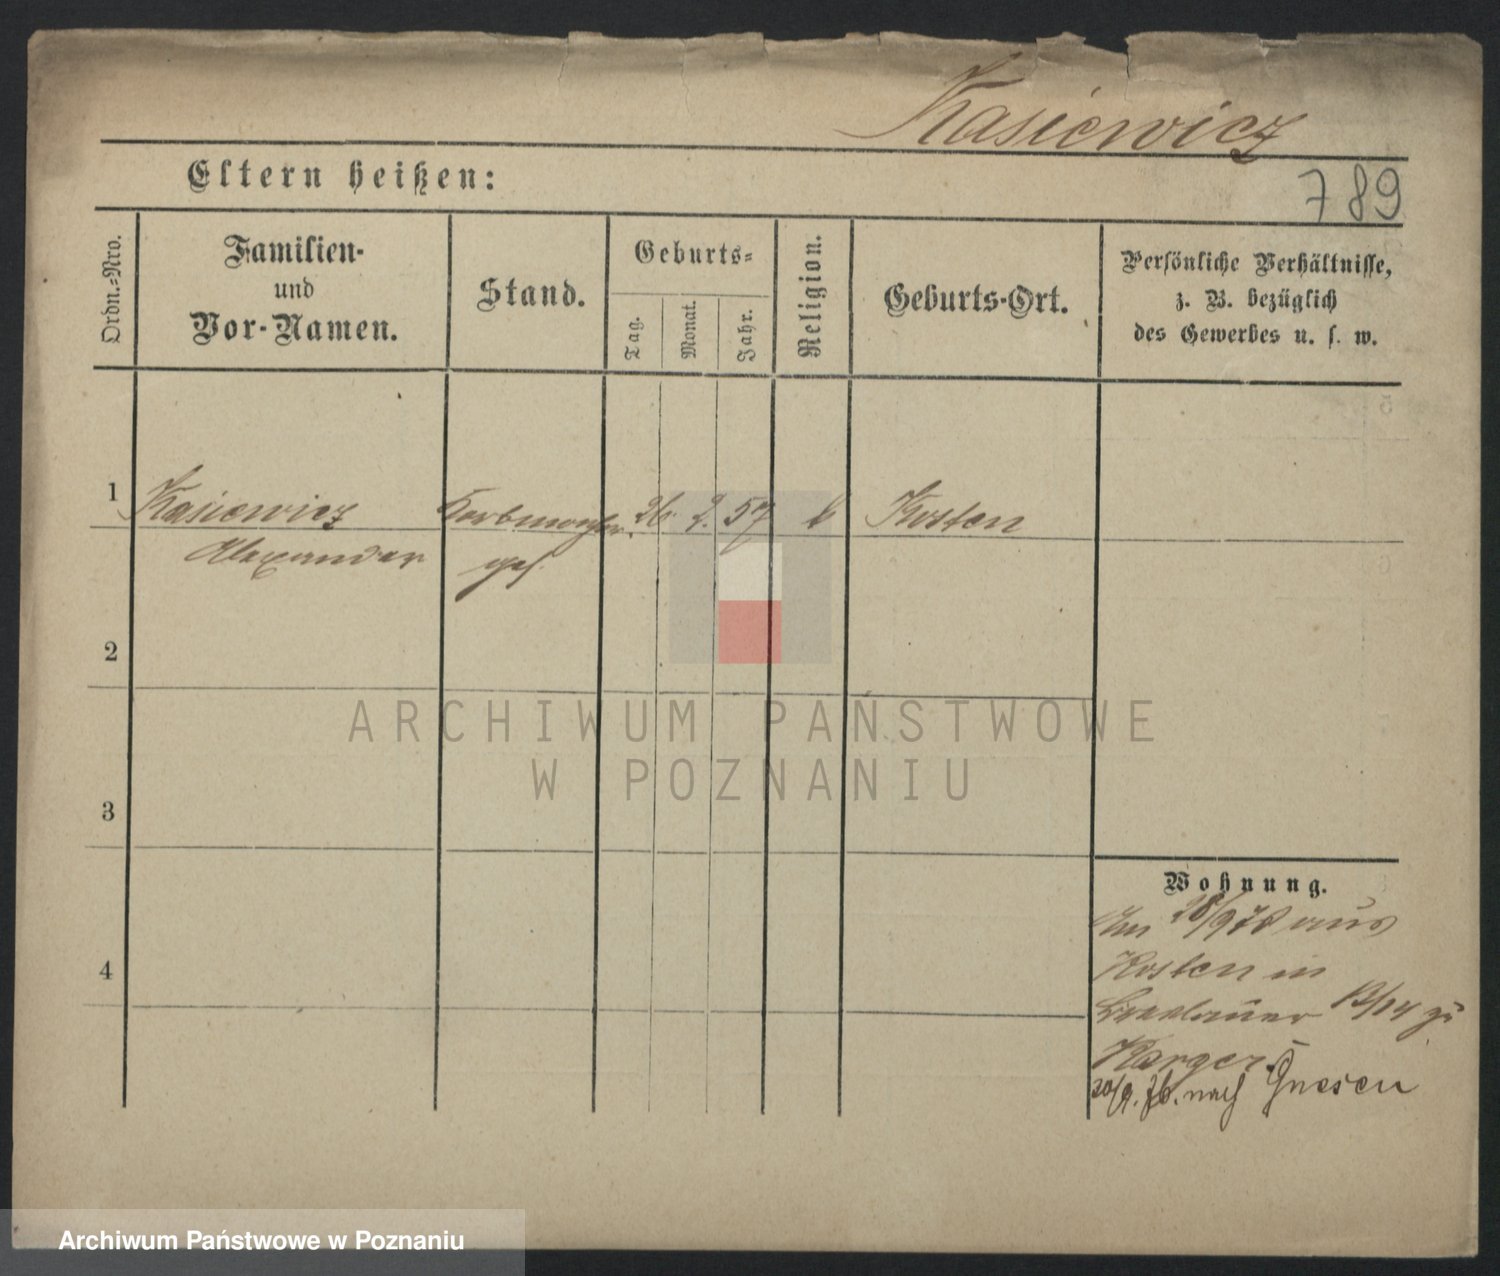 Kasiewicz
Eltern heißen:
789
Ordn.-Nro.
Familien-
und
Vor-Namen.
Stand.
Geburts-
Tag.
Monat.
Jahr.
Religion.
Geburts-Ort.
Persönliche Verhältnisse,
z. B. bezüglich
des Gewerbes u. s. w.
1
Kasiewicz
Alexander
Korbmacher
ges.
26. 2. 57
k
Kosten
2
3
4
Wohnung.
28/9 78 aus
Kosten in
13/14 zu
Karger
20/9. 76. nach Gnesen
ARCHIWUM PAŃSTWOWE
W POZNANIU
Archiwum Państwowe w Poznaniu